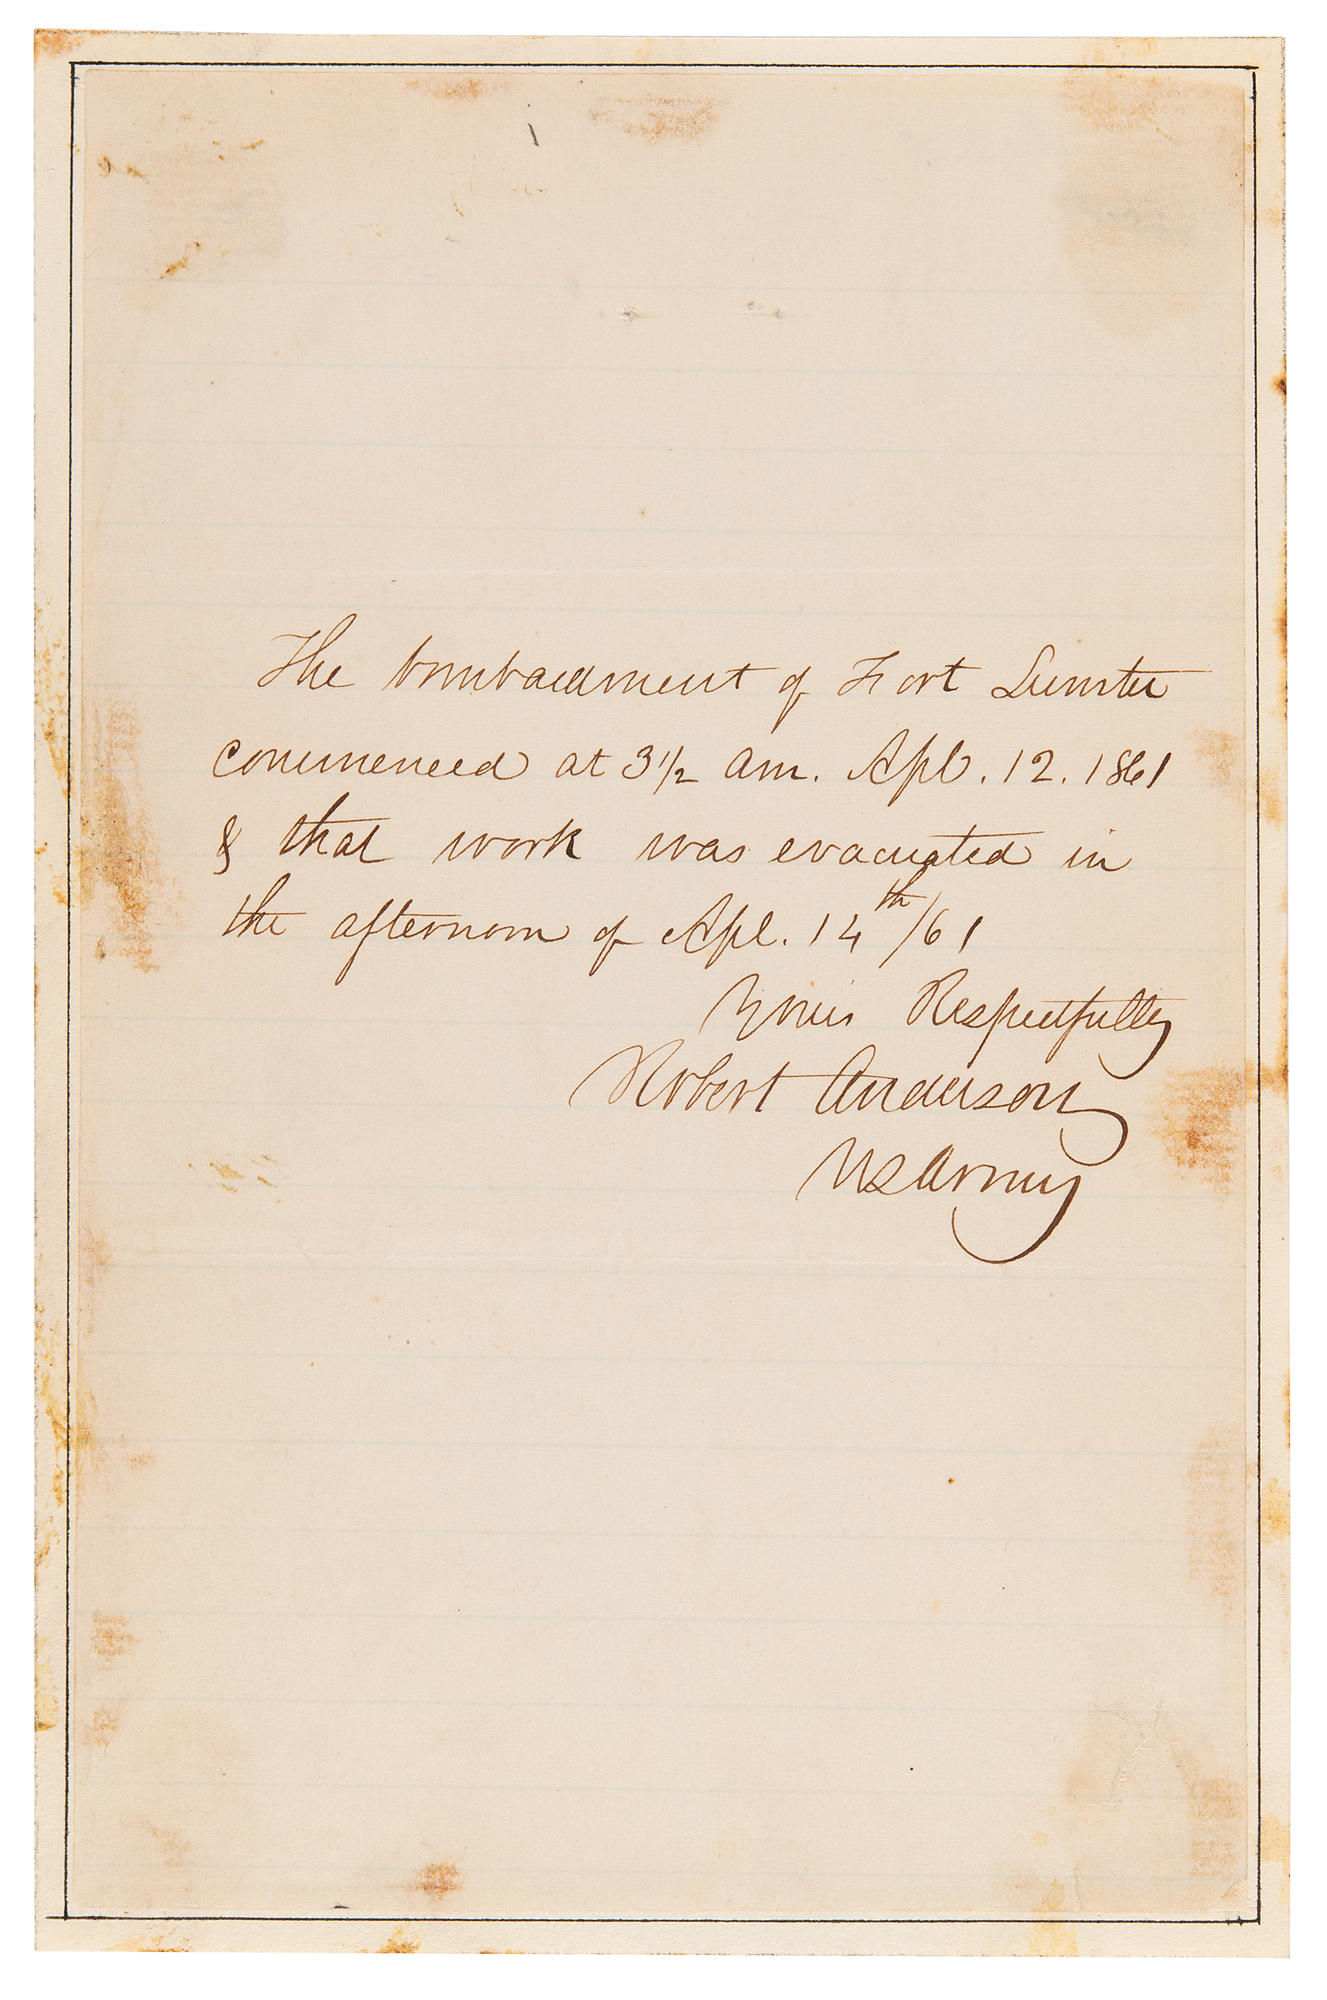 The bombardment of Fort Sumter
commenced at 3 1/2 am. Apl. 12. 1861
& that work was evacuated in
the afternoon of Apl. 14th/61
Yours Respectfully
Robert Anderson
US Army